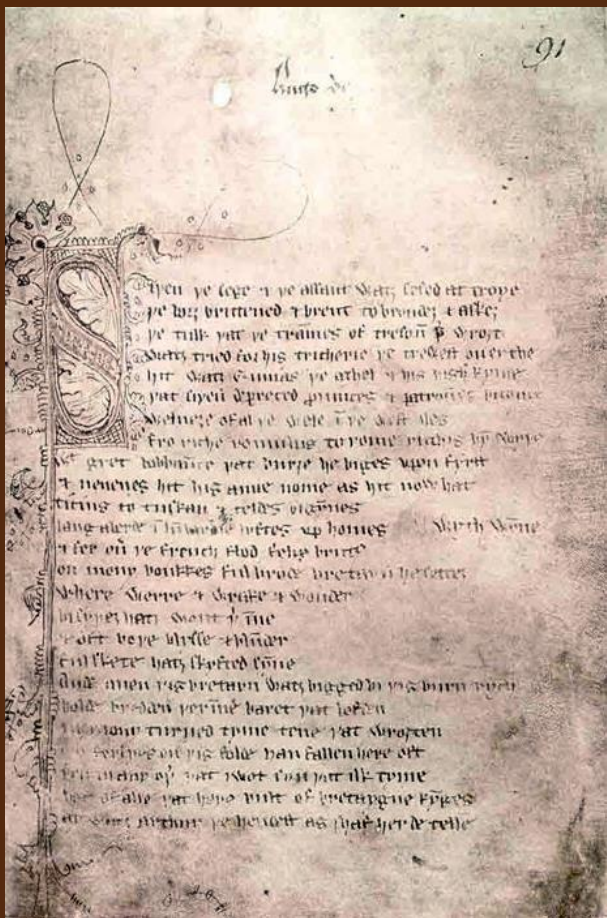 91
Hugo de
Siþen þe sege & þe assaut watz sesed at troye
þe borȝ brittened & brent to brondez & askez
þe tulk þat þe trāmes of tresoū þ̄ wroȝt
watz tried for his tricherie þe trewest on erthe
hit watz Ennias þe athel & his highe kynde
þat siþen depreced prouinces & patrounes bicome
welneȝe of al þe wele ī þe west iles
fro riche romulus to rome ricchis hym swyþe
gret bobbaūce þat burȝe he biges vpon fyrst
& neuenes hit his aune nome as hit now hat
ticius to tuskan & teldes bigȳnes
langaberde ī lumbardie lyftes vp homes wyth wȳne
& fer ou̅ þe french flod felix brutus
on mony bonkkes ful brode bretayn he settez
where werre & wrake & wonder
bi syþez hatz wont þ̄ īne
& oft boþe blysse & blūder
ful skete hatz skyfted sȳne
Ande quen þis bretayn watz bigged bi þis burn rych
bolde bredden þerīne baret þat lofden
in mony turned tyme tene þat wroȝten
mo ferlyes on þis folde han fallen here oft
þen in any oþ̄ þat I wot syn þat ilk tyme
bot of alle þat here bult of bretaygne kȳges
ay watz arthur þe hendest as I haf herde telle